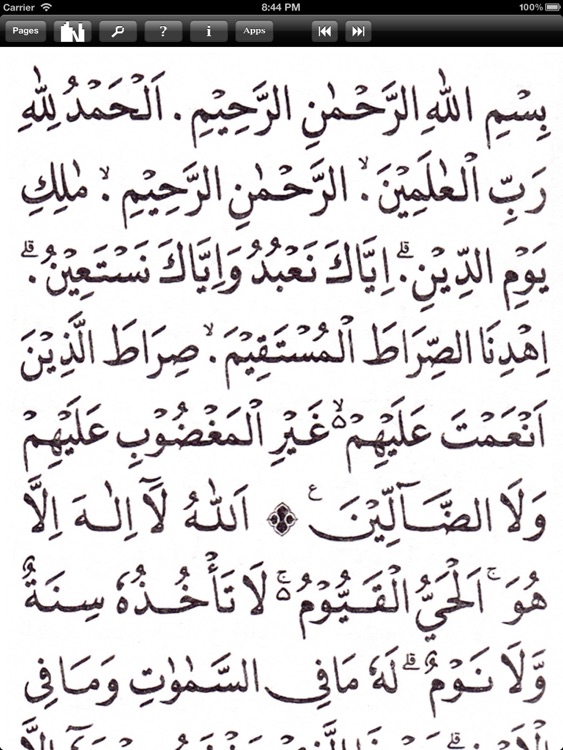 Carrier 8:44 PM 100%
Pages ? i Apps
بِسْمِ اللّٰهِ الرَّحْمٰنِ الرَّحِيْمِ . اَلْحَمْدُ لِلّٰهِ
رَبِّ الْعٰلَمِيْنَ ۙ. الرَّحْمٰنِ الرَّحِيْمِ ۙ. مٰلِكِ
يَوْمِ الدِّيْنِ ۗ. اِيَّاكَ نَعْبُدُ وَاِيَّاكَ نَسْتَعِيْنُ ۗ.
اِهْدِنَا الصِّرَاطَ الْمُسْتَقِيْمَ ۙ. صِرَاطَ الَّذِيْنَ
اَنْعَمْتَ عَلَيْهِمْ ۙ۵ غَيْرِ الْمَغْضُوْبِ عَلَيْهِمْ
وَلَا الضَّآلِّيْنَ ع اَللّٰهُ لَآ اِلٰهَ اِلَّا
هُوَ ۚ اَلْحَيُّ الْقَيُّوْمُ ۚ۵ لَا تَأْخُذُهٗ سِنَةٌ
وَّلَا نَوْمٌ ۗ لَهٗ مَا فِى السَّمٰوٰتِ وَمَا فِى